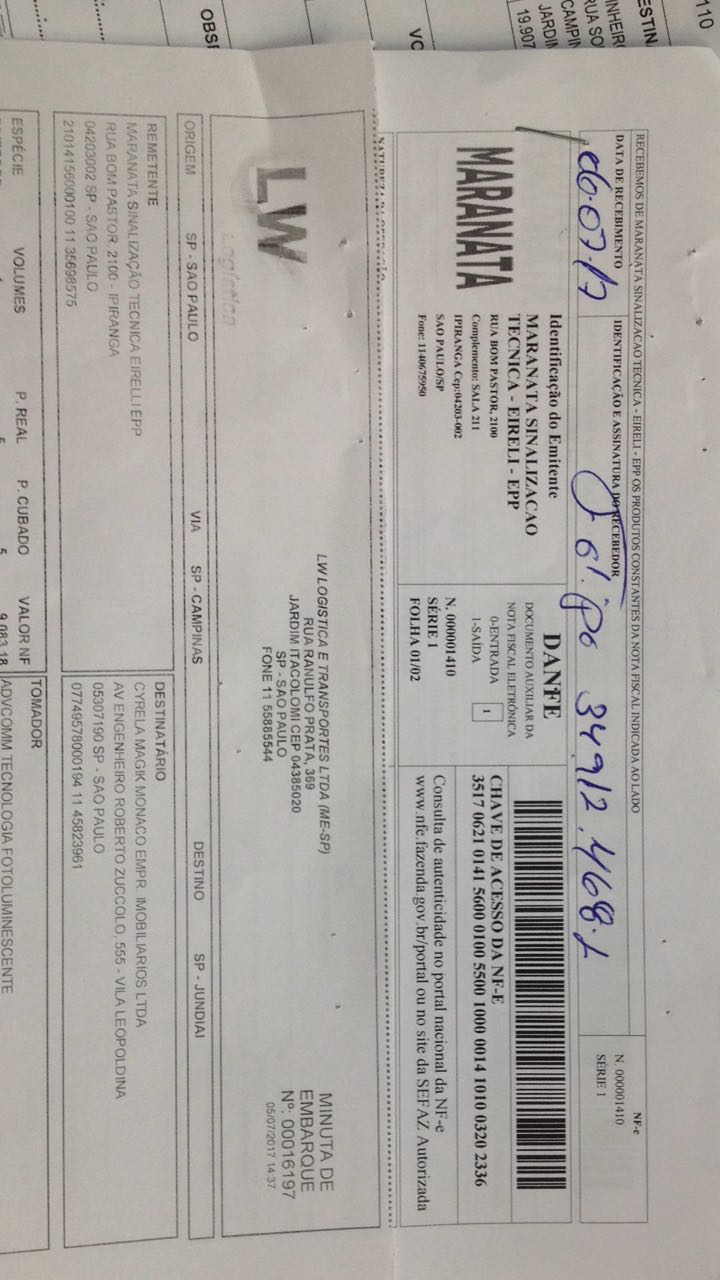 RECEBEMOS DE MARANATA SINALIZACAO TECNICA - EIRELI - EPP OS PRODUTOS CONSTANTES DA NOTA FISCAL INDICADA AO LADO
DATA DE RECEBIMENTO
IDENTIFICAÇÃO E ASSINATURA DO RECEBEDOR
06.07.17
34912.468.1
NF-e
N. 000001410
SÉRIE 1
MARANATA
Identificação do Emitente
MARANATA SINALIZACAO
TECNICA - EIRELI - EPP
RUA BOM PASTOR, 2100
Complemento: SALA 211
IPIRANGA Cep:04203-002
SAO PAULO/SP
Fone: 1140675950
DANFE
DOCUMENTO AUXILIAR DA
NOTA FISCAL ELETRÔNICA
0-ENTRADA
1-SAÍDA
1
N. 000001410
SÉRIE 1
FOLHA 01/02
CHAVE DE ACESSO DA NF-E
3517 0621 0141 5600 0100 5500 1000 0014 1010 0320 2336
Consulta de autenticidade no portal nacional da NF-e
www.nfe.fazenda.gov.br/portal ou no site da SEFAZ Autorizada
NATUREZA DA OPERAÇÃO
LW
Logística
LW LOGISTICA E TRANSPORTES LTDA (ME-SP)
RUA RANULFO PRATA, 369
JARDIM ITACOLOMI CEP 04385020
SP - SAO PAULO
FONE 11 55885544
MINUTA DE
EMBARQUE
Nº: 00016197
05/07/2017 14:37
ORIGEM SP - SAO PAULO VIA SP - CAMPINAS DESTINO SP - JUNDIAI
REMETENTE
MARANATA SINALIZAÇÃO TECNICA EIRELLI EPP
RUA BOM PASTOR, 2100 - IPIRANGA
04203002 SP - SAO PAULO
21014156000100 11 35698575
DESTINATÁRIO
CYRELA MAGIK MONACO EMPR. IMOBILIARIOS LTDA
AV ENGENHEIRO ROBERTO ZUCCOLO, 555 - VILA LEOPOLDINA
05307190 SP - SAO PAULO
07749578000194 11 45823961
ESPÉCIE VOLUMES P. REAL P. CUBADO VALOR NF
5 9.083,18
TOMADOR
ADVCOMM TECNOLOGIA FOTOLUMINESCENTE
110
ESTIN
INHEIR
RUA SO
CAMPIN
JARDI
19.907
VO
OBS